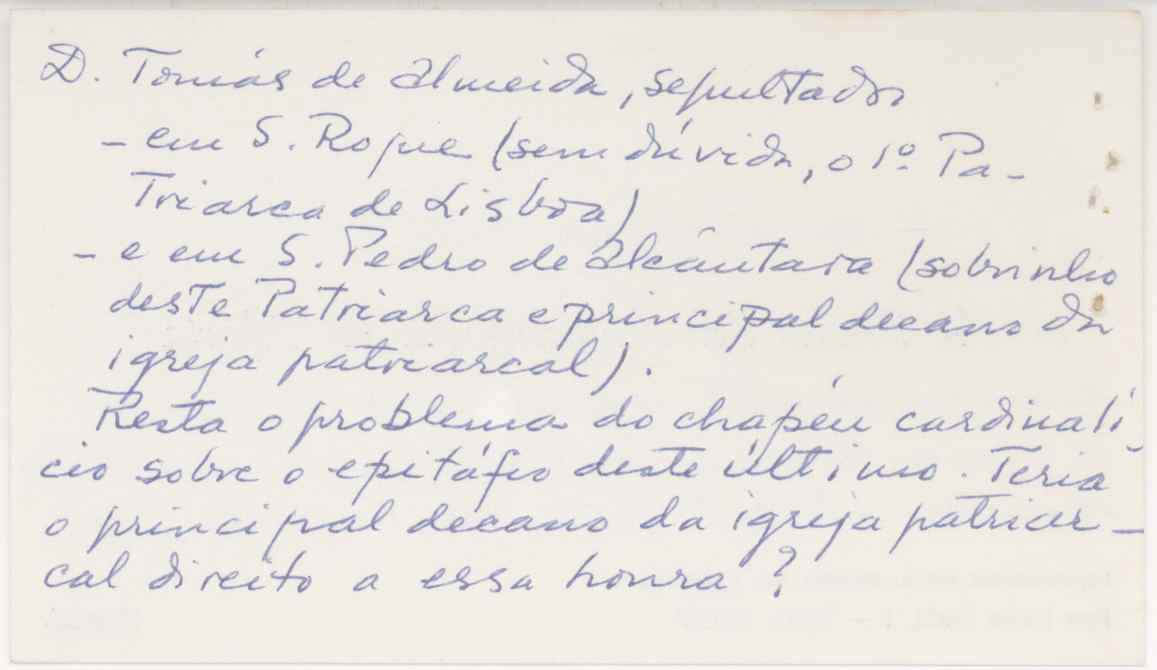 D. Tomás de Almeida, sepultado
- em S. Roque (sem dúvida, o 1º Pa-
triarca de Lisboa)
- e em S. Pedro de Alcântara (sobrinho
deste Patriarca e principal decano da
igreja patriarcal).
Resta o problema do chapéu cardinalí-
cio sobre o epitáfio deste último. Teria
o principal decano da igreja patriar-
cal direito a essa honra?